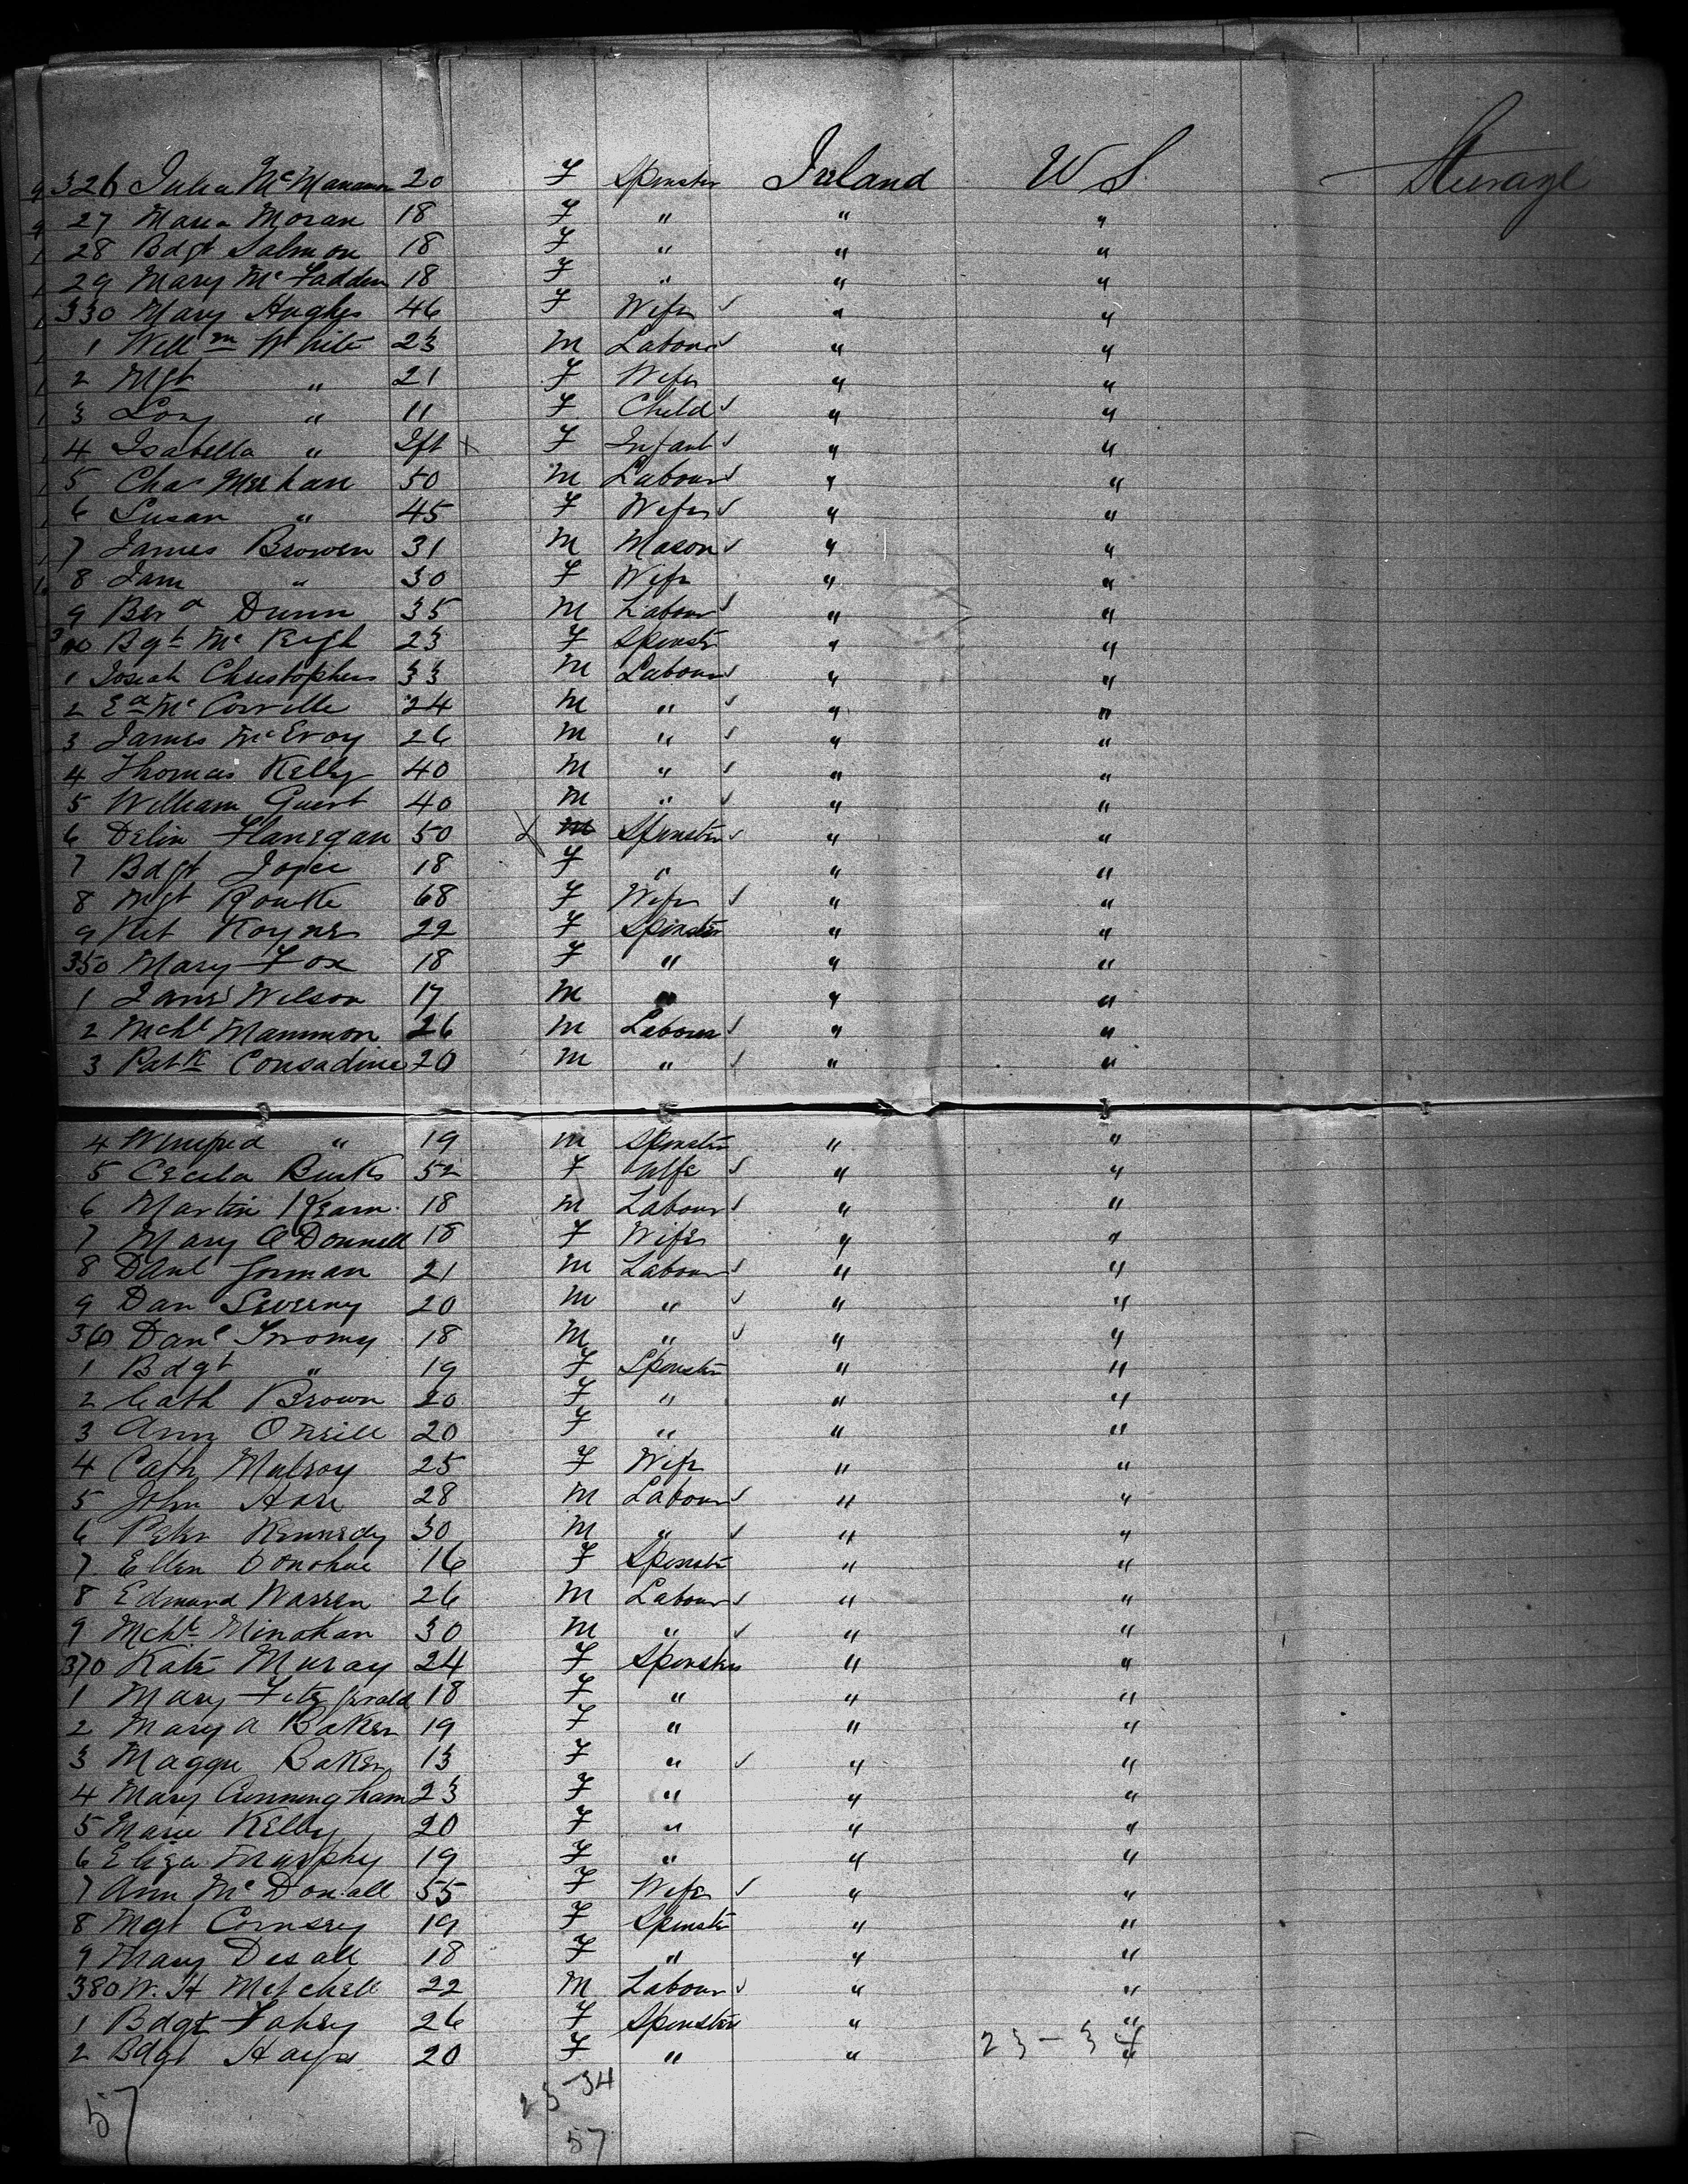 326 Julia McManamon 20 F Spinster Ireland W S. Steerage
27 Maria Moran 18 F " " "
28 Bdgt Salmon 18 F " " "
29 Mary McFadden 18 F " " "
330 Mary Hughes 46 F Wife " "
1 Willm White 23 M Labour " "
2 Mgt " 21 F Wife " "
3 " 11 F Child " "
4 Isabella " Ift F Infant " "
5 Chas Meehan 50 M Labour " "
6 Susan " 45 F Wife " "
7 James Browen 31 M Mason " "
8 Jam " 30 F Wife " "
9 Berd Dunn 35 M Labour " "
Bgt Mc 23 F Spinstr " "
1 Josiah Christophers 33 M Labour " "
2 Ed Mc Corville 24 M " " "
3 James McEvoy 26 M " " "
4 Thomas Kelly 40 M " " "
5 William Guest 40 M " " "
6 Delia Flanegan 50 M Spinster " "
7 Bdgt Joyce 18 F " " "
8 Mgt Rourke 68 F Wife " "
9 Kat Koyne 22 F Spinster " "
350 Mary Fox 18 F " " "
1 James Wilson 17 M " " "
2 Mchl Mammon 26 M Labour " "
3 Patk Consadine 20 M " " "
4 Winifred " 19 M Spinster " "
5 Cecila Burke 52 F Wife " "
6 Martin Kearn 18 M Labour " "
7 Mary O Donnell 18 F Wife " "
8 Danl Gorman 21 M Labour " "
9 Dan 20 M " " "
360 Danl Twomy 18 M " " "
1 Bdgt " 19 F Spinster " "
2 Cath Brown 20 F " " "
3 Ann O Neill 20 F " " "
4 Cath Mulroy 25 F Wife " "
5 John Hare 28 M Labour " "
6 Peter Kennedy 30 M " " "
7 Ellen Donohue 16 F Spinster " "
8 Edmund Warren 26 M Labour " "
9 Mchl Minahan 30 M " " "
370 Kate Muray 24 F Spinster " "
1 Mary Fitz Gerald 18 F " " "
2 Mary A Baker 19 F " " "
3 Maggie Baker 13 F " " "
4 Mary Cunningham 23 F " " "
5 Marie Kelly 20 F " " "
6 Eliza Murphy 19 F " " "
7 Ann McDonall 55 F Wife " "
8 Mgt 19 F Spinster " "
9 Mary 18 F " " "
380 W. H Mitchell 22 M Labour " "
1 Bdgt Fahey 26 F Spinster " "
2 Bdgt Hayes 20 F " " "
23 - 34
23 - 34
57
57